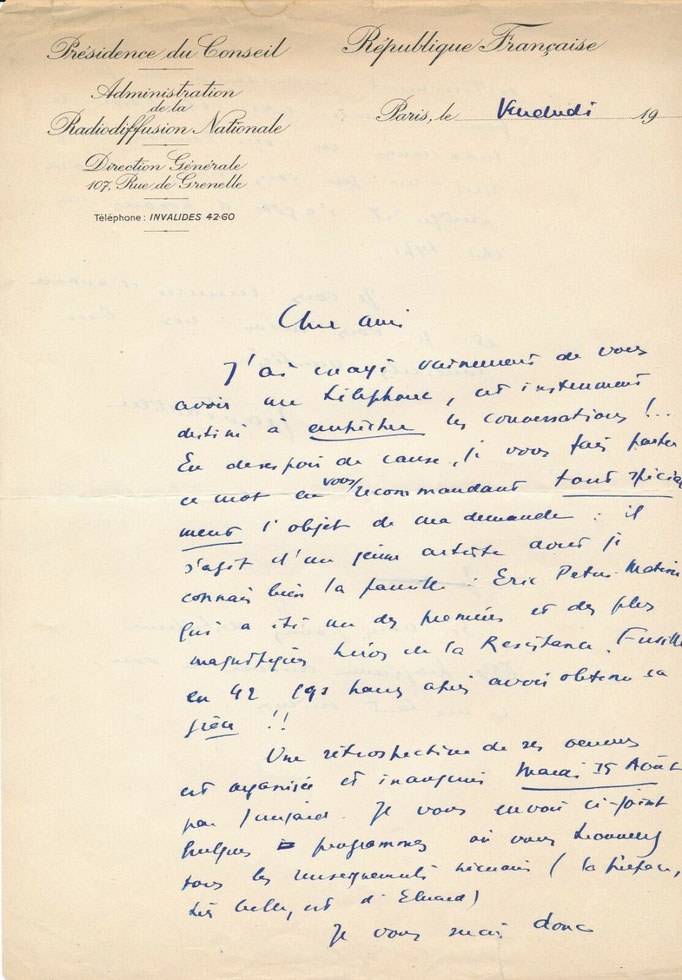 Présidence du Conseil
République Française
Administration
de la
Radiodiffusion Nationale
Direction Générale
107, Rue de Grenelle
Téléphone : INVALIDES 42-60
Paris, le Vendredi 19
Cher ami
J'ai essayé vainement de vous
avoir au téléphone, cet instrument
destiné à empêcher les conversations !..
En desespoir de cause, je vous fais porter
ce mot en vous recommandant tout spéciale
ment l'objet de ma demande : il
s'agit d'un jeune artiste dont je
connais bien la famille : Eric Peters
qui a été un des premiers et des plus
magnifiques héros de la Resistance. Fusillé
en 42 après avoir obtenu sa
grâce !!
Une rétrospective de ses oeuvres
est organisée et inaugurée Mardi Août
par . Je vous envoie ci-joint
quelques programmes où vous trouverez
tous les renseignements nécessaires (la préface,
très belle, est d'Eluard)
Je vous serais donc